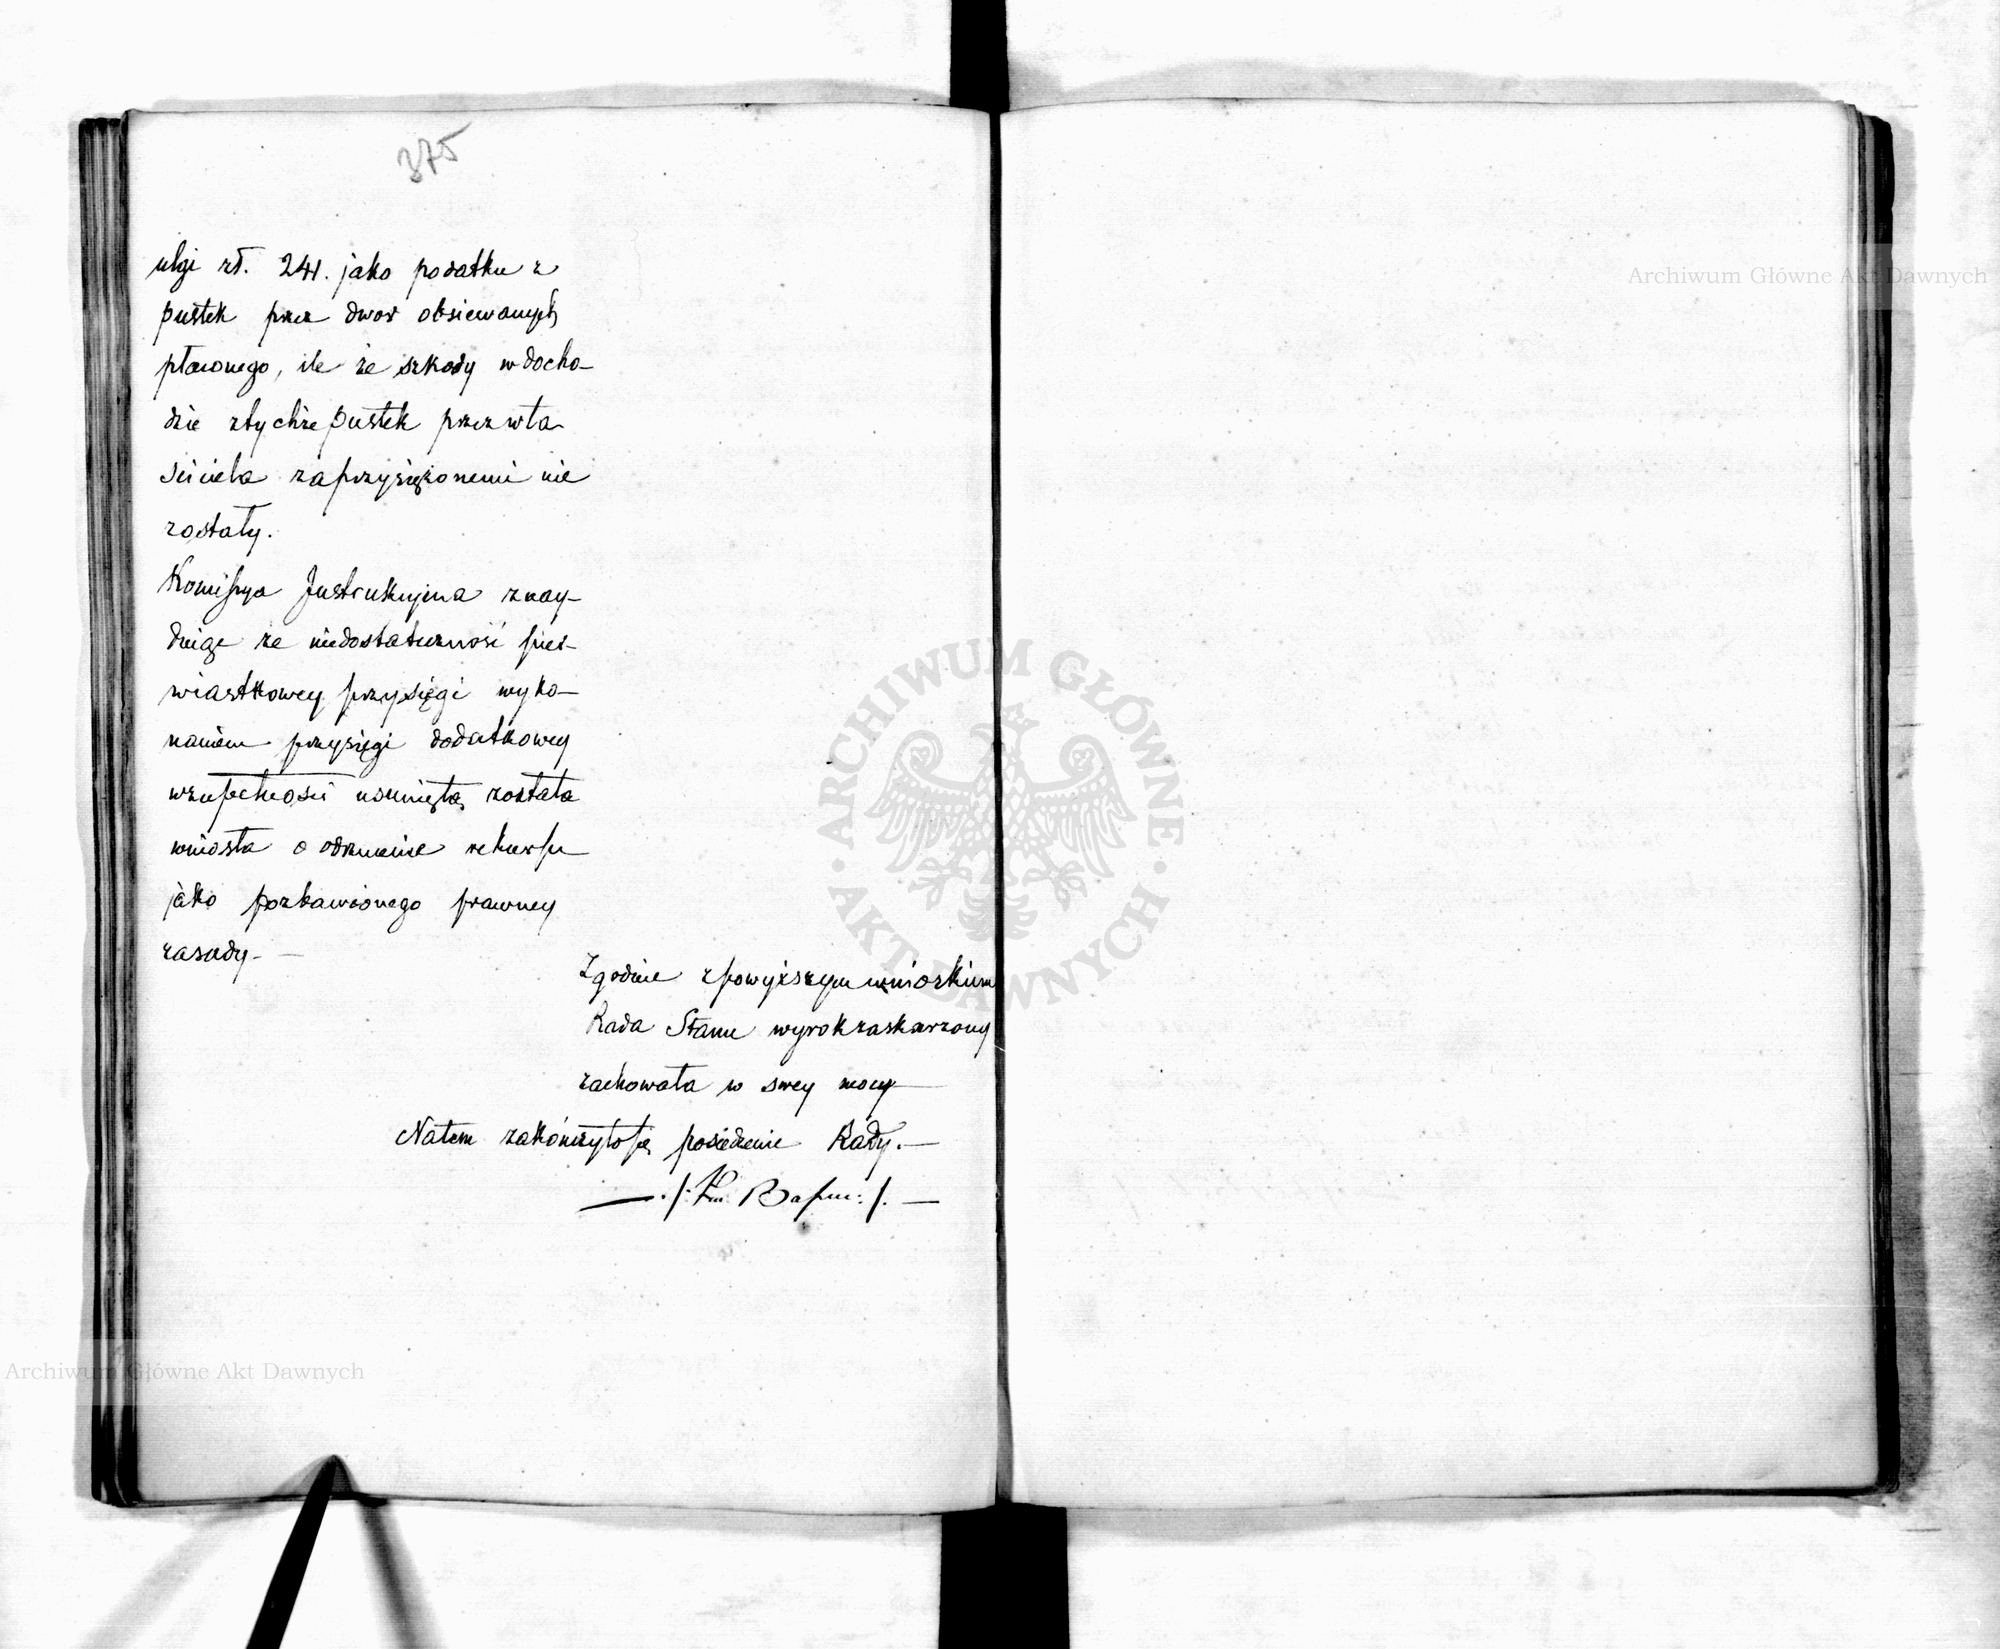 375
ulgi zł. 241. jako podatku z
pustek przez dwor obsiewanych
płaconego, ile że szkody w docho-
dzie ztychże pustek przez wła-
ściciela zaprzysiężonemi nie
zostały.
Komissya Instrukcyjna znay-
duiąc że niedostateczność pier-
wiastkowey przysięgi wyko-
naniem przysięgi dodatkowey
wzupełności usuniętą została
wniosła o odrzucenie rekursu
jako pozbawionego prawney
zasady. —
Zgodnie zpowyższym wnioskiem
Rada Stanu wyrok zaskarzony
zachowała w swey mocy —
Na tem zakończyło się posiedzenie Rady. —
Archiwum Główne Akt Dawnych
Archiwum Główne Akt Dawnych
ARCHIWUM GŁÓWNE · AKT DAWNYCH ·